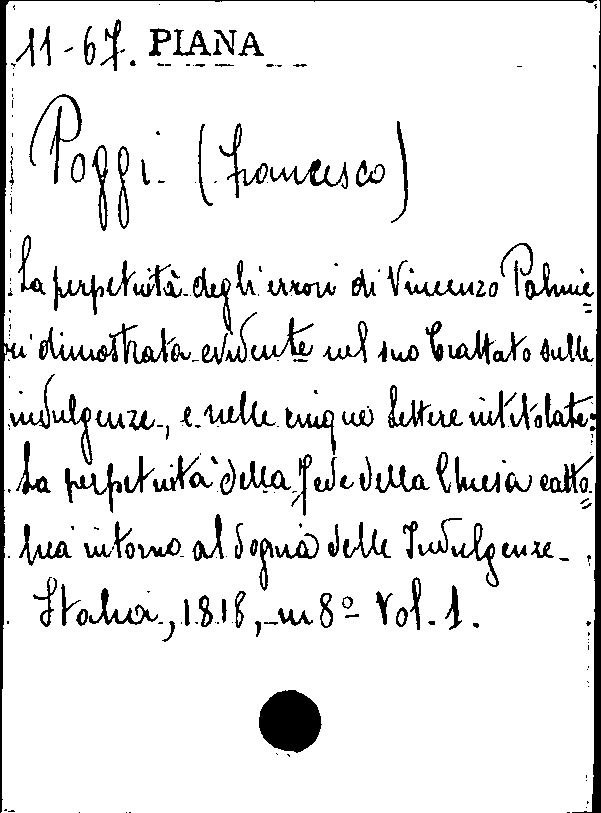 11-67. PIANA
Poggi (Francesco)
La perpetuità degli errori di Vincenzo Palmie=
ri dimostrata evidente nel suo Trattato sulle
indulgenze, e nelle cinque Lettere intitolate:
La perpetuità della Fede della Chiesa catto=
lica intorno al dogma delle Indulgenze.
Italia, 1818, in 8º Vol. 1.